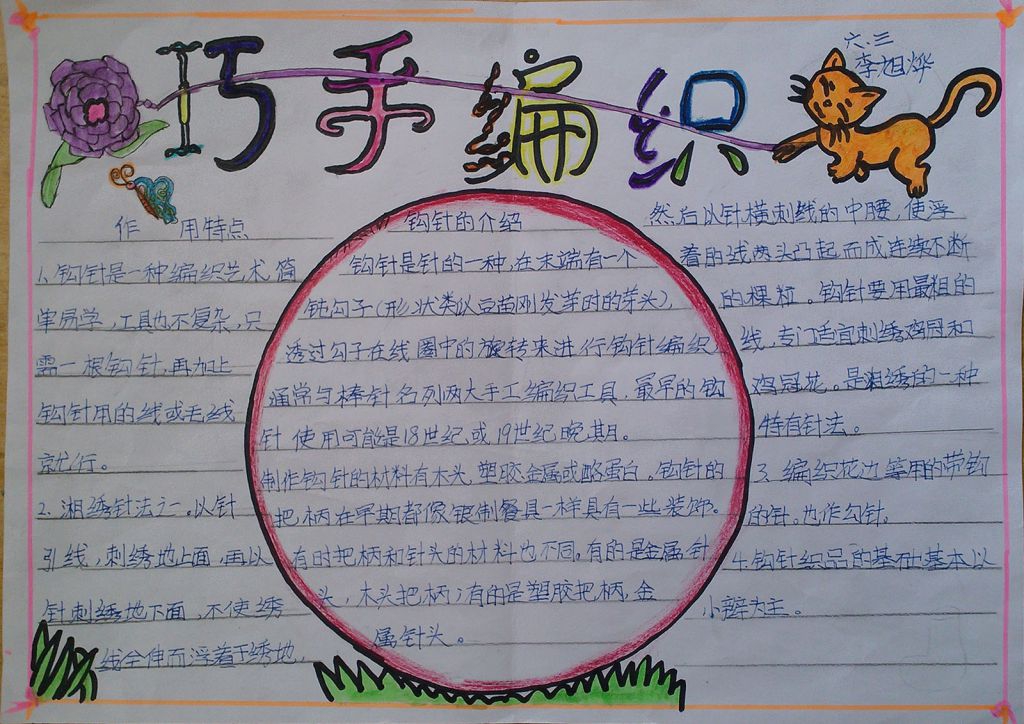 巧手编织
六.三
李旭烨
作 用特点
1、钩针是一种编织艺术,简
单易学,工具也不复杂,只
需一根钩针,再加上
钩针用的线或毛线
就行。
2、湘绣针法之一。以针
引线,刺绣地上面,再以
针刺绣地下面,不使绣
线全伸而浮着于绣地,
钩针的介绍
钩针是针的一种,在末端有一个
钝勾子(形状类似豆苗刚发芽时的芽头),
透过勾子在线圈中的旋转来进行钩针编织
通常与棒针名列两大手工编织工具,最早的钩
针使用可能是18世纪或19世纪晚期。
制作钩针的材料有木头 塑胶,金属或酪蛋白。钩针的
把柄在早期都像银制餐具一样具有一些装饰。
有时把柄和针头的材料也不同,有的是金属针
头,木头把柄;有的是塑胶把柄,金
属针头。
然后以针横刺线的中腰,使浮
着的线两头凸起而成连续不断
的粿粒。钩针要用最粗的
线,专门适宜刺绣鸡冠和
鸡冠花。是粗绣的一种
特有针法。
3、编织花边等用的带钩
的针。也作勾针。
4、钩针织品的基础基本以
小辫为主。